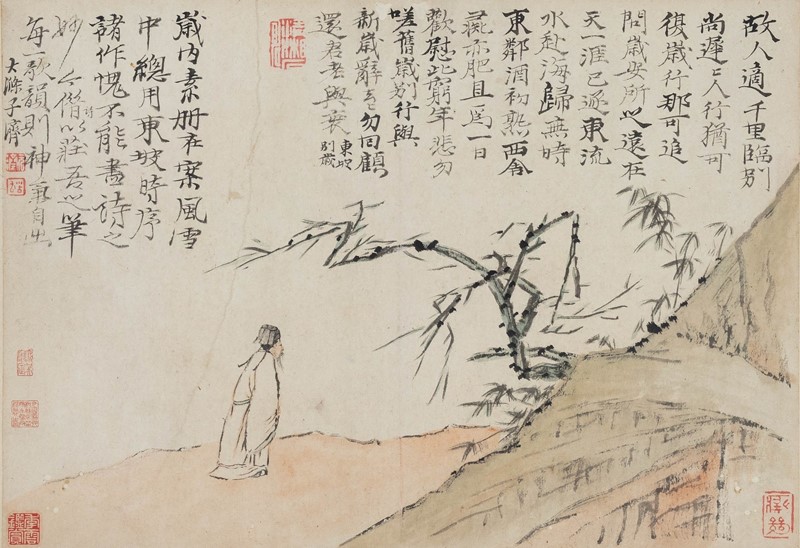 故人適千里臨別
尚遲〻人行猶可
復歲行那可追
問歲安所之遠在
天一涯已逐東流
水赴海歸無時
東鄰酒初熟西舍
彘亦肥且為一日
歡慰此窮年悲勿
嗟舊歲別行與
新歲辭去〻勿回顧
還君老與衰
東坡
別歲
歲內素冊在案風雪
中總用東坡時序
諸作愧不能盡詩之
妙今僭以莊吾之筆
每一歌韻則神兼自出
大滌子濟